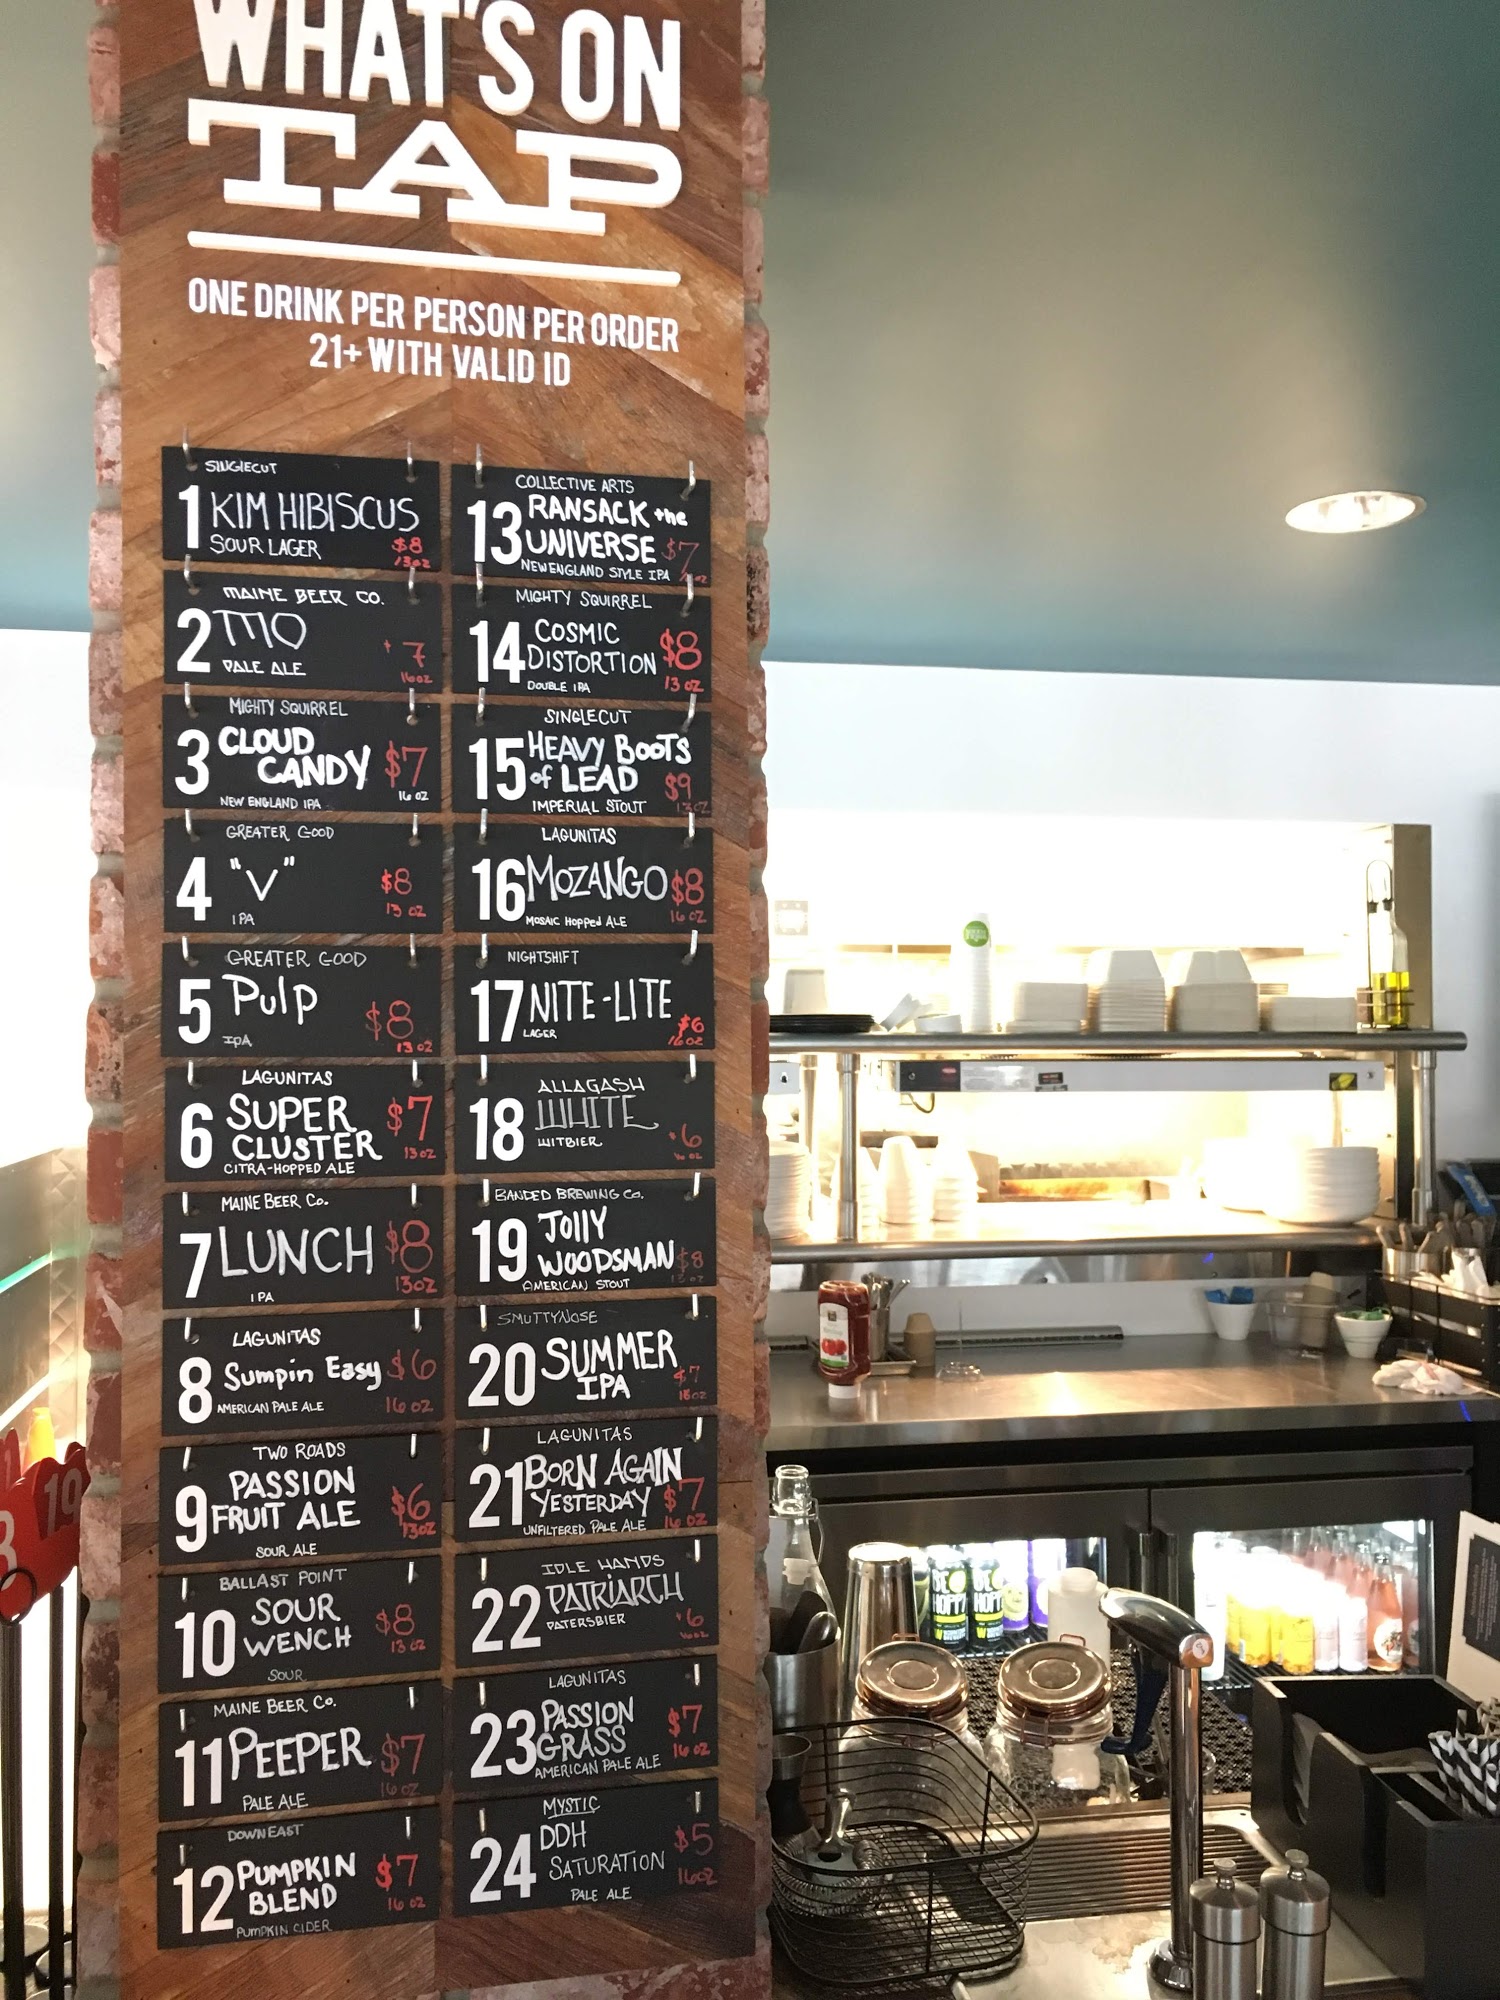 WHAT'S ON
TAP
ONE DRINK PER PERSON PER ORDER
21+ WITH VALID ID
SINGLECUT
1 KIM HIBISCUS
SOUR LAGER $8
13oz
MAINE BEER CO.
2 MO
PALE ALE 7
16oz
MIGHTY SQUIRREL
3 CLOUD
CANDY $7
NEW ENGLAND IPA 16 oz
GREATER GOOD
4 "V" $8
IPA 13 oz
GREATER GOOD
5 Pulp $8
IPA 13 oz
LAGUNITAS
6 SUPER $7
CLUSTER 13 oz
CITRA-HOPPED ALE
MAINE BEER Co.
7 LUNCH $8
IPA 13oz
LAGUNITAS
8 Sumpin Easy $6
AMERICAN PALE ALE 16 oz
TWO ROADS
9 PASSION
FRUIT ALE $6
SOUR ALE 13oz
BALLAST POINT
10 SOUR $8
WENCH 13 oz
SOUR
MAINE BEER Co.
11 PEEPER $7
PALE ALE 16 oz
DOWNEAST
12 PUMPKIN $7
BLEND 16 oz
PUMPKIN CIDER
COLLECTIVE ARTS
13 RANSACK the
UNIVERSE $7
NEW ENGLAND STYLE IPA
MIGHTY SQUIRREL
14 COSMIC $8
DISTORTION
DOUBLE IPA 13 oz
SINGLECUT
15 HEAVY BOOTS
of LEAD $9
IMPERIAL STOUT 13oz
LAGUNITAS
16 MOZANGO $8
MOSAIC HOPPED ALE 16 oz
NIGHTSHIFT
17 NITE-LITE $6
LAGER 16oz
ALLAGASH
18 WHITE
WITBIER 6
BANDED BREWING Co.
19 JOLLY
WOODSMAN $8
AMERICAN STOUT 13 oz
SMUTTYNOSE
20 SUMMER $7
IPA 16oz
LAGUNITAS
21 BORN AGAIN
YESTERDAY $7
UNFILTERED PALE ALE 16 oz
IDLE HANDS
22 PATRIARCH
PATERSBIER 6
LAGUNITAS
23 PASSION $7
GRASS 16 oz
AMERICAN PALE ALE
MYSTIC
24 DDH $5
SATURATION 16oz
PALE ALE
19
BE
HOPPY
BE
HOPPY